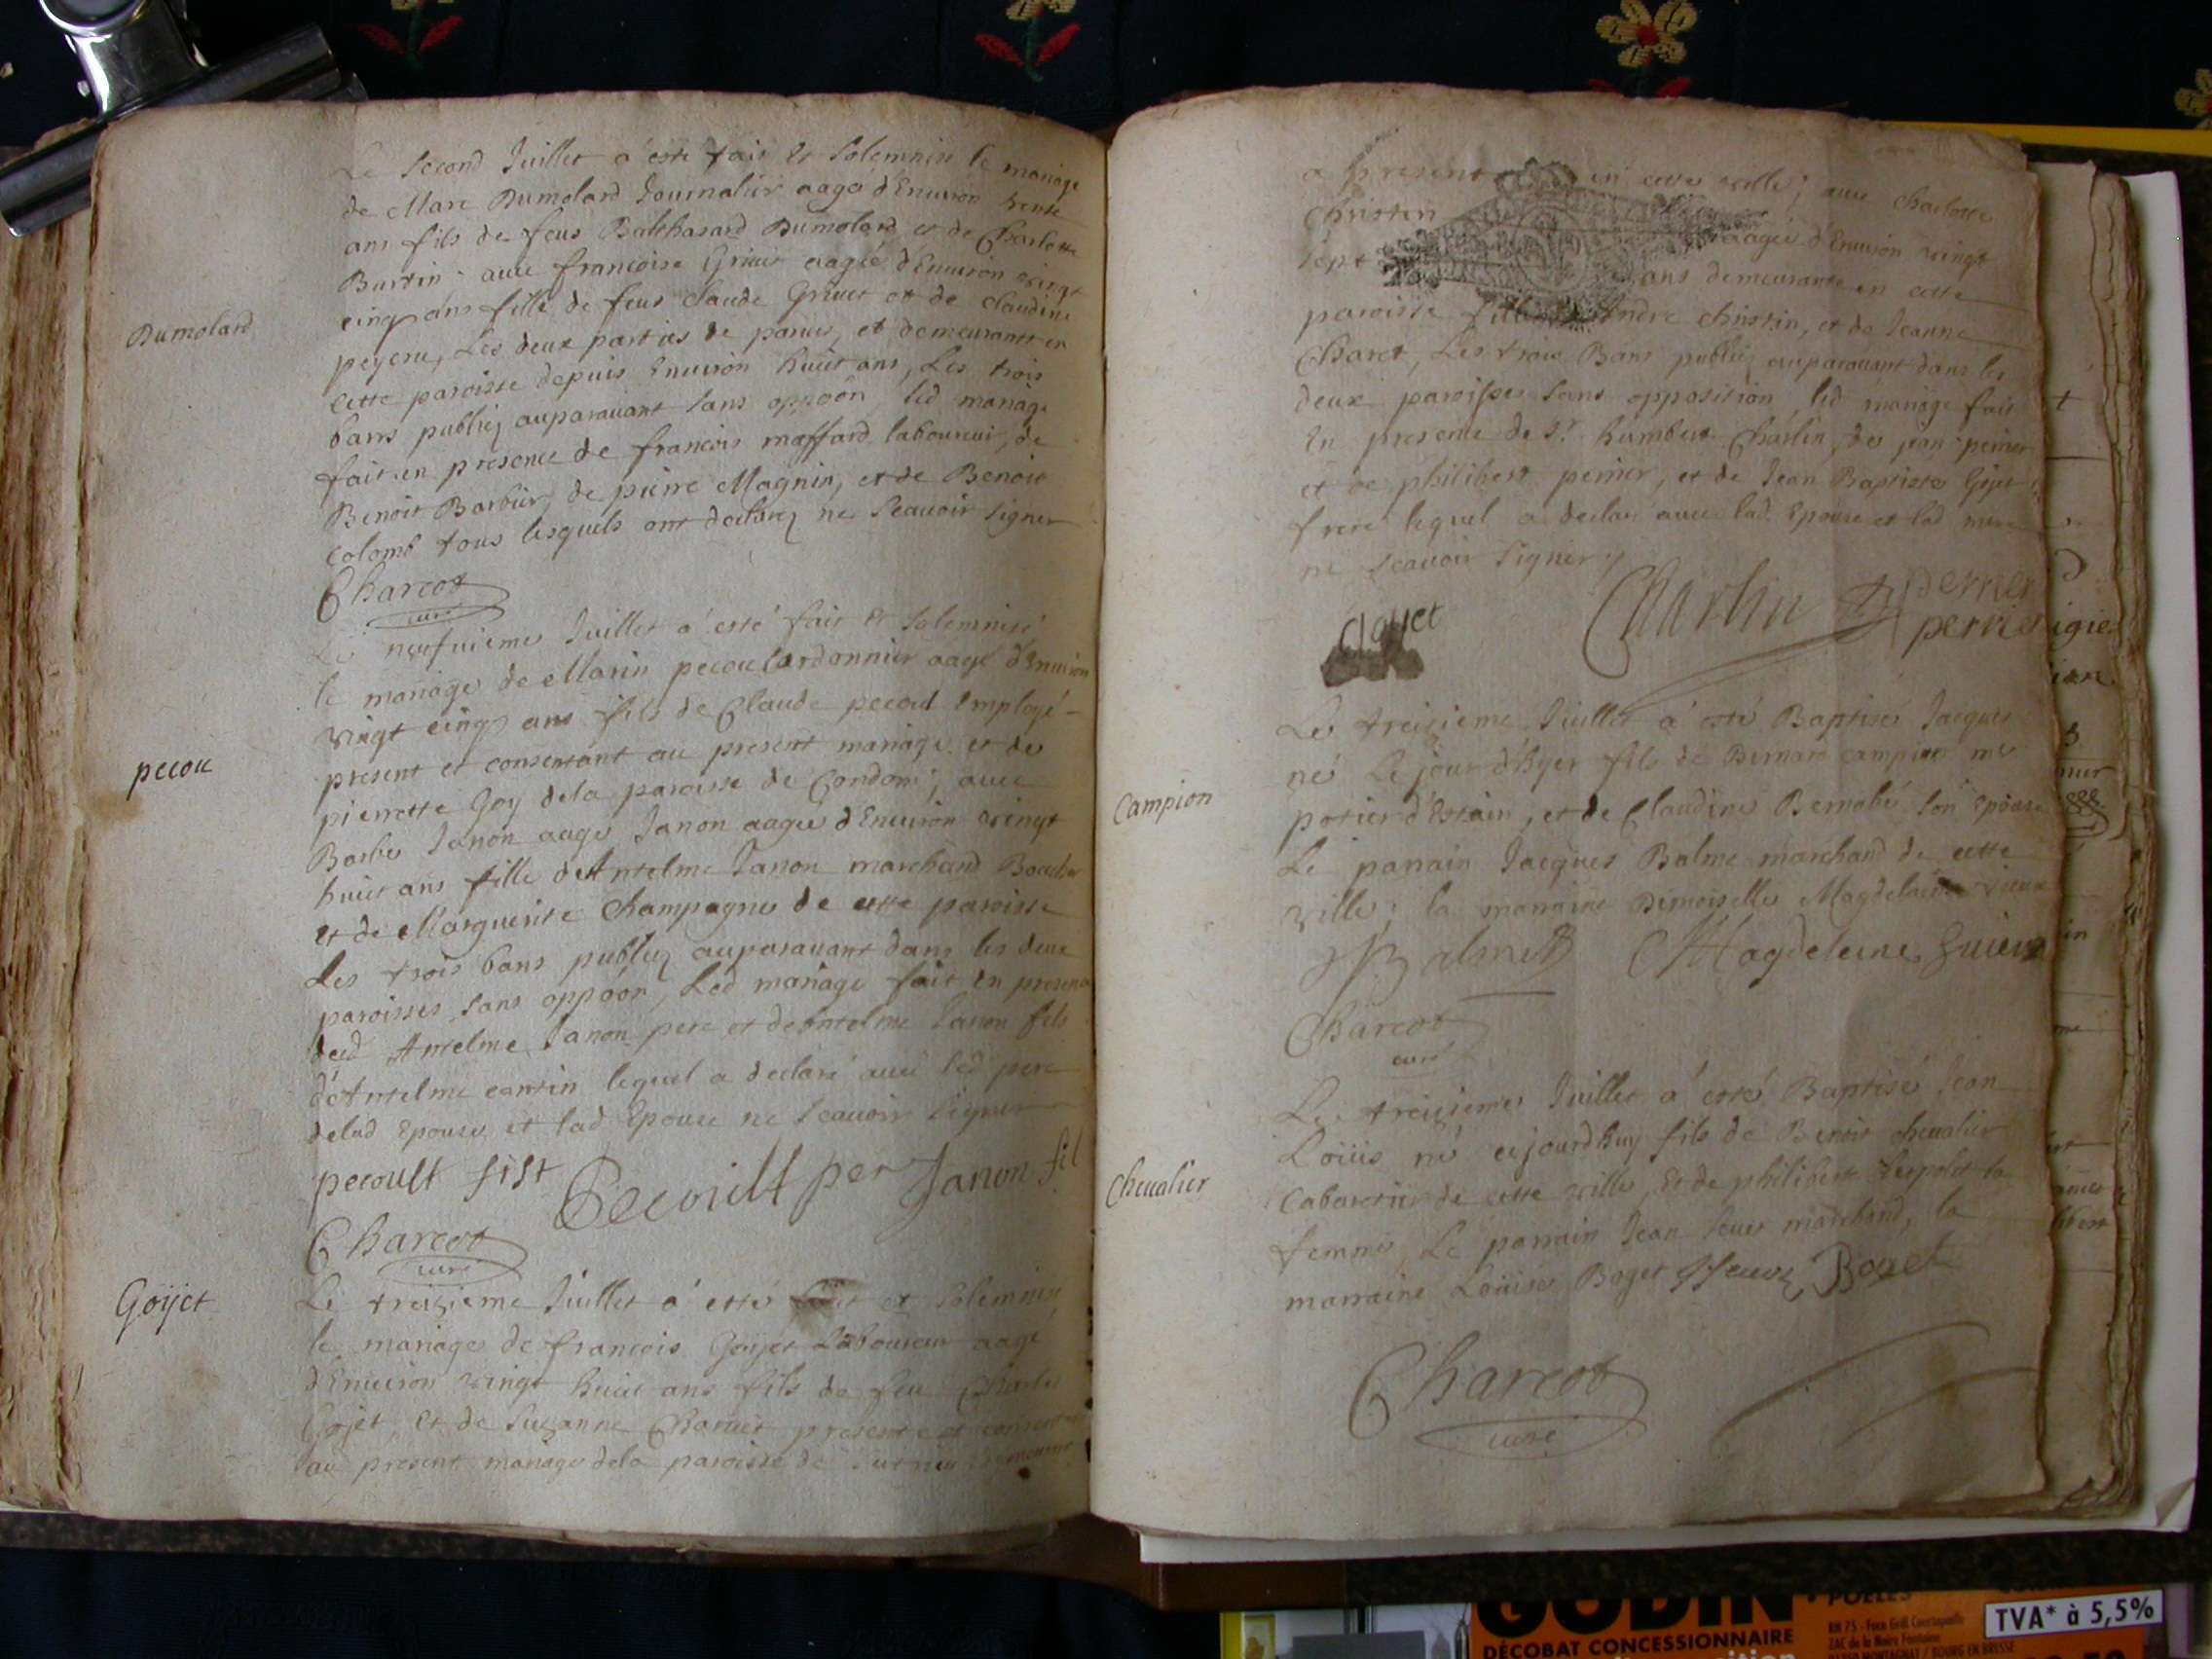 Le second Juillet a esté fait et solemnisé le mariage
de Marc Dumolard Journalier aagé d'Environ trente
ans fils de feus Balthasard Dumolard et de Charlotte
Burtin avec francoise Grivet aagée d'Environ vingt
cinq ans fille de feus Claude Grivet et de claudine
Dumolard
Les deux parties de et demeurants en
cette paroisse depuis Environ huict ans, Les trois
bans publiez auparavant sans oppoôn led mariage
fait en presence de francois maffard laboureur, de
Benoit Barbier, de pierre Magnin, et de Benoit
colomb tous lesquels ont declarez ne Scavoir signer
Charcot
curé
Le neufvieme Juillet a esté fait et solemnisé
le mariage de Marin pecou Cordonnier aagé d'Environ
vingt cinq ans fils de Claude pecoul Employé
pecou
present et consentant au present mariage et de
pierrette Goy dela paroisse de Condom; avec
Barbe Janon aagee Janon aagee d'Environ vingt
huict ans fille d'Antelme Janon marchand Boucher
et de Marguerite Champagne de cette paroisse
Les trois bans publiez auparavant dans les deux
paroisses sans oppoôn, Led mariage fait en presence
dud Antelme Janon pere et de Antelme Janon fils
d'Antelme cantin lequel a declaré avec led pere
delad Epouse et lad Epouse ne Scavoir signer
pecoult fist Pecoult per Janon fil
Charcot
curé
Goÿet
Le treizieme Juillet a esté fait et solemnisé
le mariage de francois Goyet Laboureur aagé
d'Environ vingt huict ans fils de feu Charles
Gojet, et de Suzanne present et
au present mariage dela paroisse de
a present en cette ville; avec charlotte
Christin aagée d'Environ vingt
sept ans demeurante en cette
paroisse fille Andre christin, et de Jeanne
Charet, Les trois Bans publiez auparavant dans les
deux paroisses sans opposition led mariage fait
En presence de Sr. humbert Charlin, de jean perrier
et de philibert perrier, et de Jean Baptiste Gojet
frere lequel a declaré avec lad Epouse et lad mere
ne scavoir signer
Charlin perrier
perrier
Le treizieme Juillet a esté Baptisé Jacques
né Le jour d'hyer fils de Bernard campion me
Campion
potier d'Estain, et de Claudine Bernobé son Epouse
Le parrain Jacques Balme marchand de cette
ville; la marraine Dimoiselle Magdelaine
Balme Magdeleine
Charcot
curé
Le treizieme Juillet a esté Baptisé Jean
Loüis né cejourd'huy fils de Benoit chevalier
Chevalier
Cabaretier de cette ville, Et de philiberte sa
femme, Le parrain Jean marchand, la
marraine Loüise Boget Boget
Charcot
curé
GODIN POELES
DÉCOBAT CONCESSIONNAIRE
TVA* à 5,5%